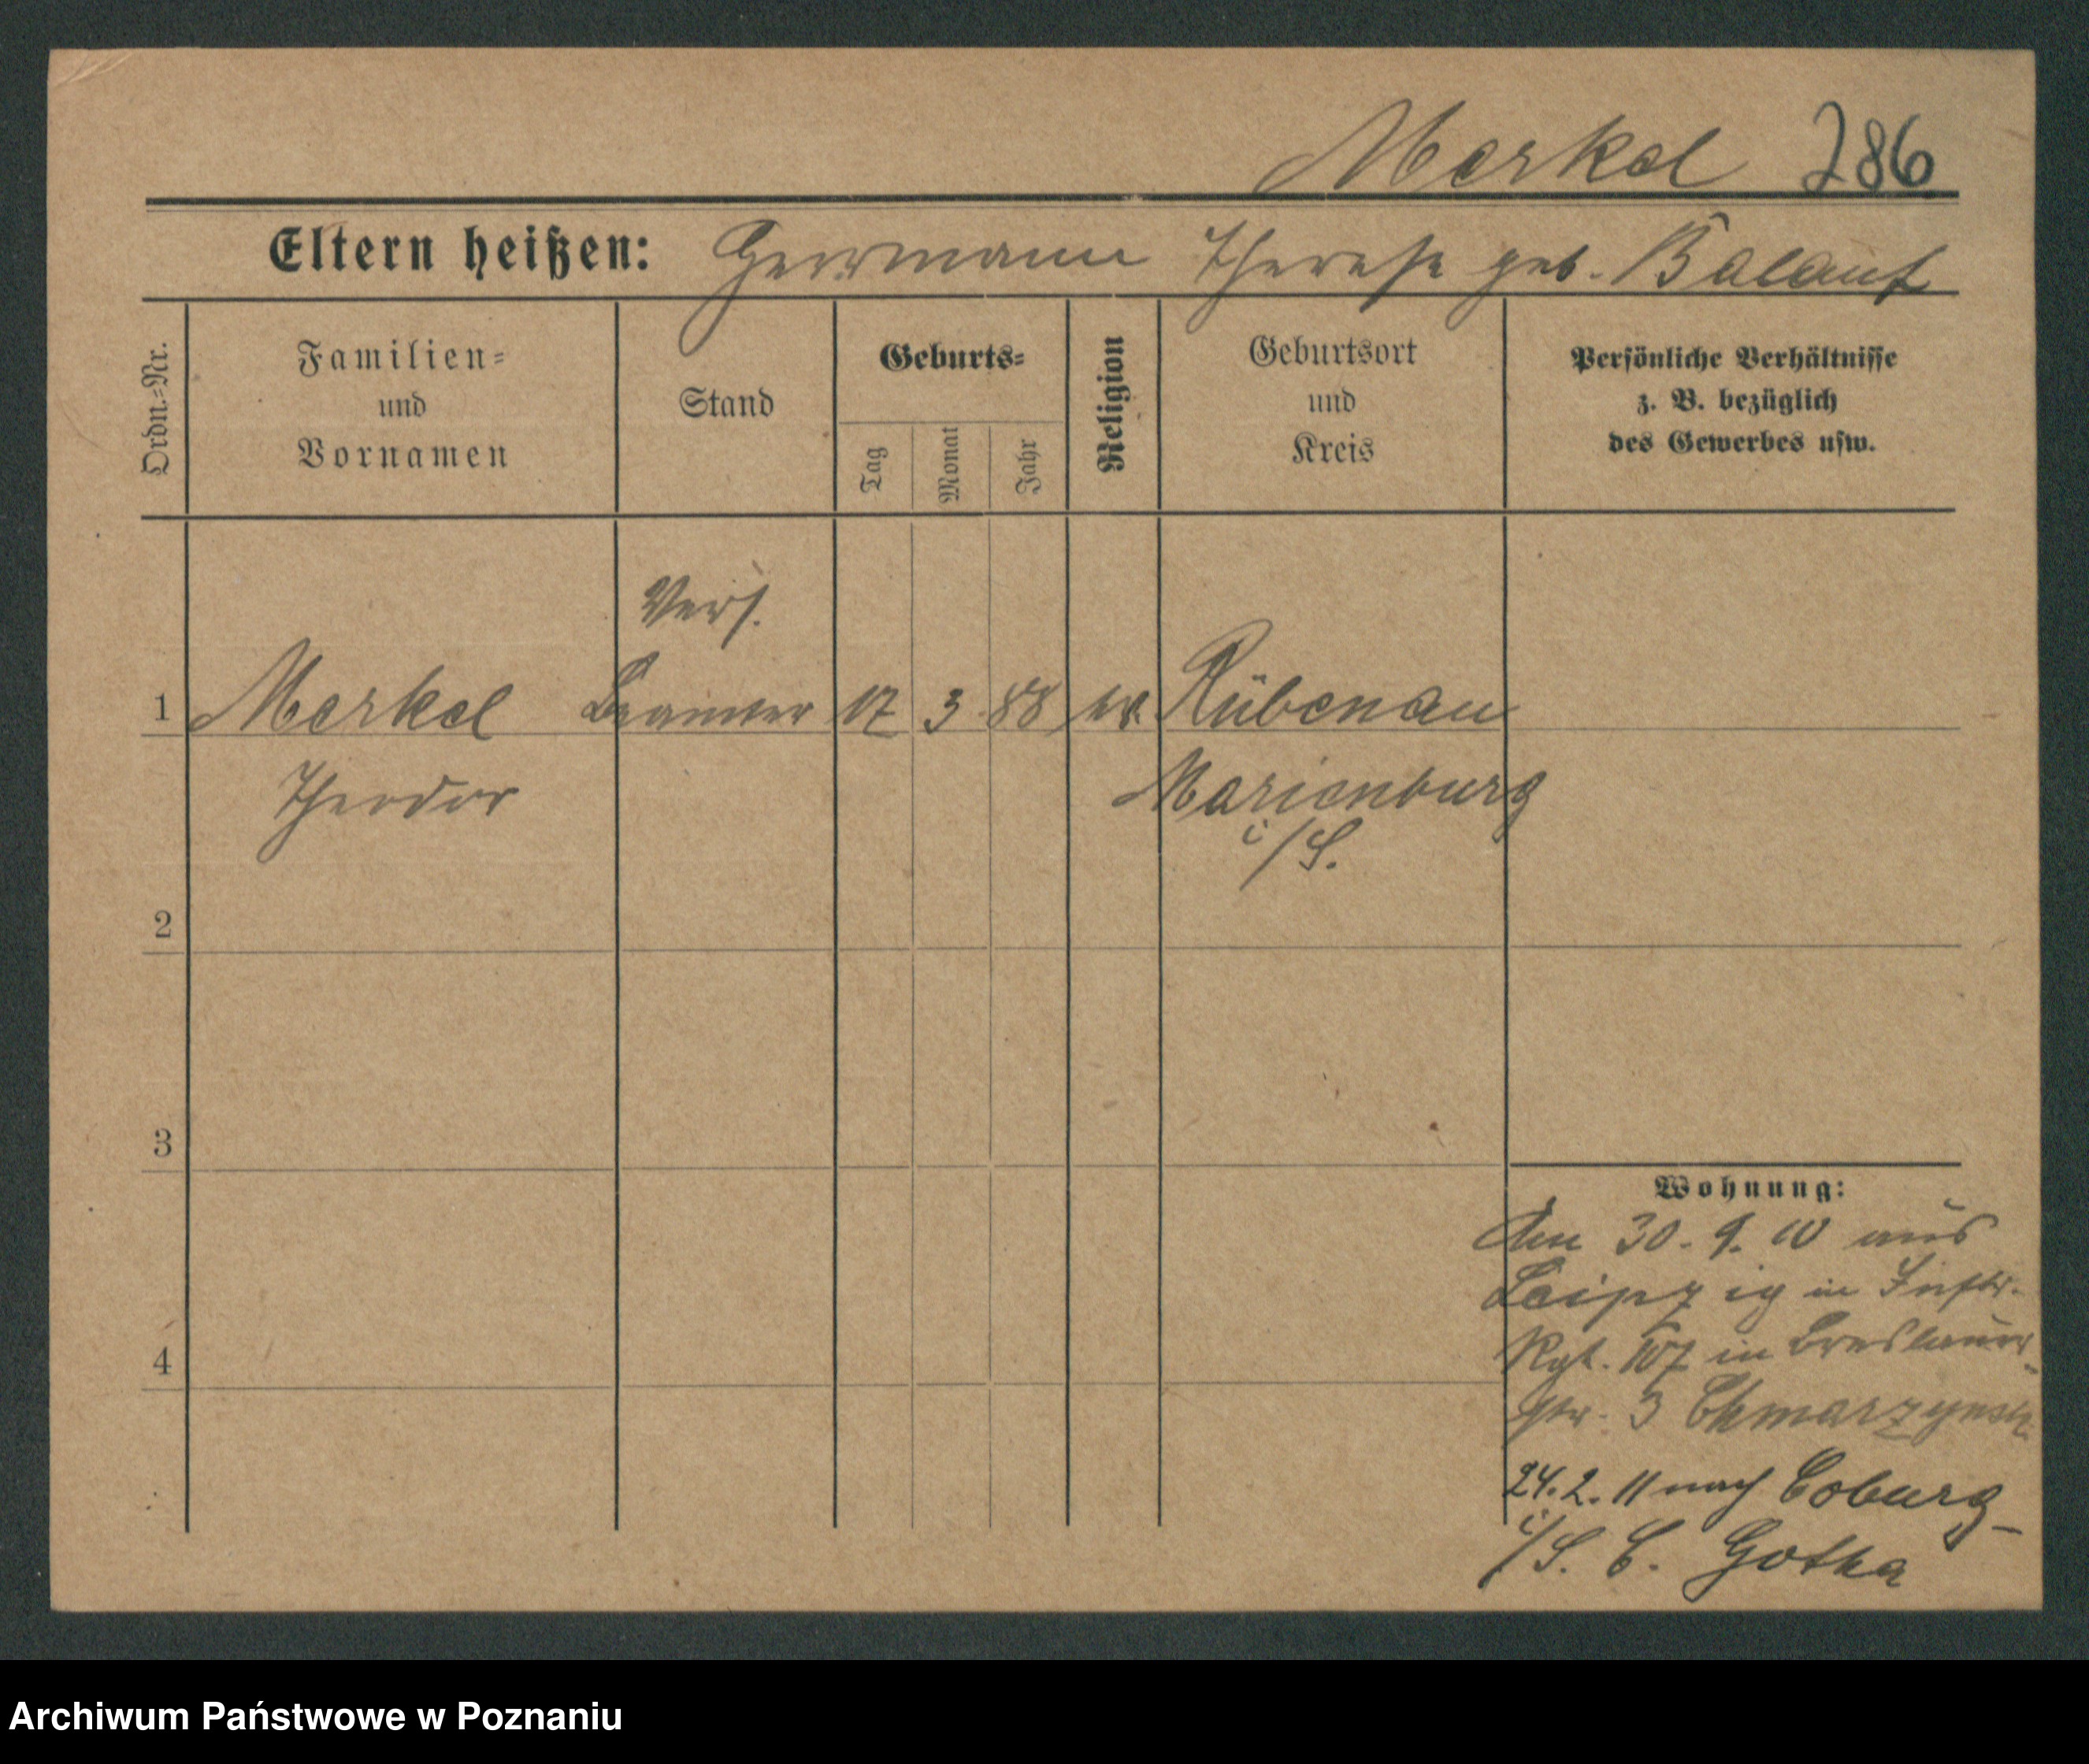 Merkel 286
Eltern heißen: Herrmann Therese geb. Balauf
Ordn.=Nr.
Familien=
und
Vornamen
Stand
Geburts=
Tag
Monat
Jahr
Religion
Geburtsort
und
Kreis
Persönliche Verhältnisse
z. B. bezüglich
des Gewerbes usw.
Vers.
1 Merkel Beamter 17 3 88 ev. Rübenau
Theodor Marienburg
i/S.
2
3
4
Wohnung:
Am 30. 9. 10 aus
Leipzig in Inftr.
Rgt. 107 in Breslauer-
str. 3
24. 2. 11 nach Coburg-
i/S. C. Gotha
Archiwum Państwowe w Poznaniu